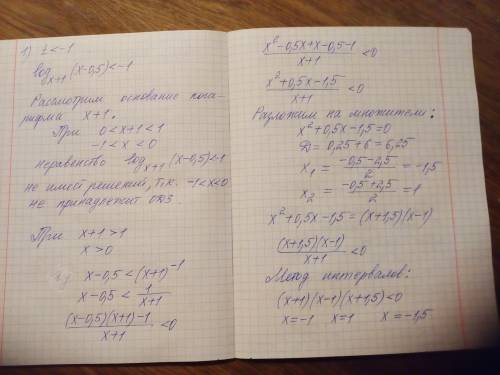 1) t < -1
log_{x+1} (x-0,5) < -1
Рассмотрим основание лога-
рифма x+1.
При 0 < x+1 < 1
-1 < x < 0
неравенство log_{x+1} (x-0,5) < -1
не имеет решений, т.к. -1 < x < 0
не принадлежит ОДЗ.
При x+1 > 1
x > 0
x-0,5 < (x+1)^{-1}
x-0,5 < \frac{1}{x+1}
\frac{(x-0,5)(x+1)-1}{x+1} < 0
\frac{x^2-0,5x+x-0,5-1}{x+1} < 0
\frac{x^2+0,5x-1,5}{x+1} < 0
Разложим на множители:
x^2+0,5x-1,5=0
D = 0,25+6 = 6,25
x_1 = \frac{-0,5-2,5}{2} = -1,5
x_2 = \frac{-0,5+2,5}{2} = 1
x^2+0,5x-1,5 = (x+1,5)(x-1)
\frac{(x+1,5)(x-1)}{x+1} < 0
Метод интервалов:
(x+1)(x-1)(x+1,5) < 0
x=-1 x=1 x=-1,5